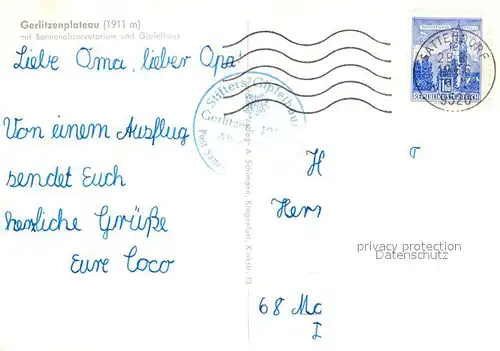 Gerlitzenplateau (1911 m)
mit Sonnenobservatorium und Gipfelhaus
Liebe Oma, lieber Opa
Von einem Ausflug
sendet Euch
herzliche Grüße
Eure Coco
Stifters Gipfelhaus
Gerlitzen
Post Satten
Verlag: A. Schimann, Klagenfurt, Kinkstr.
SATTENDORF
9520
REPUBLIK
H
Herrn
68 Ma
I
privacy protection
Datenschutz